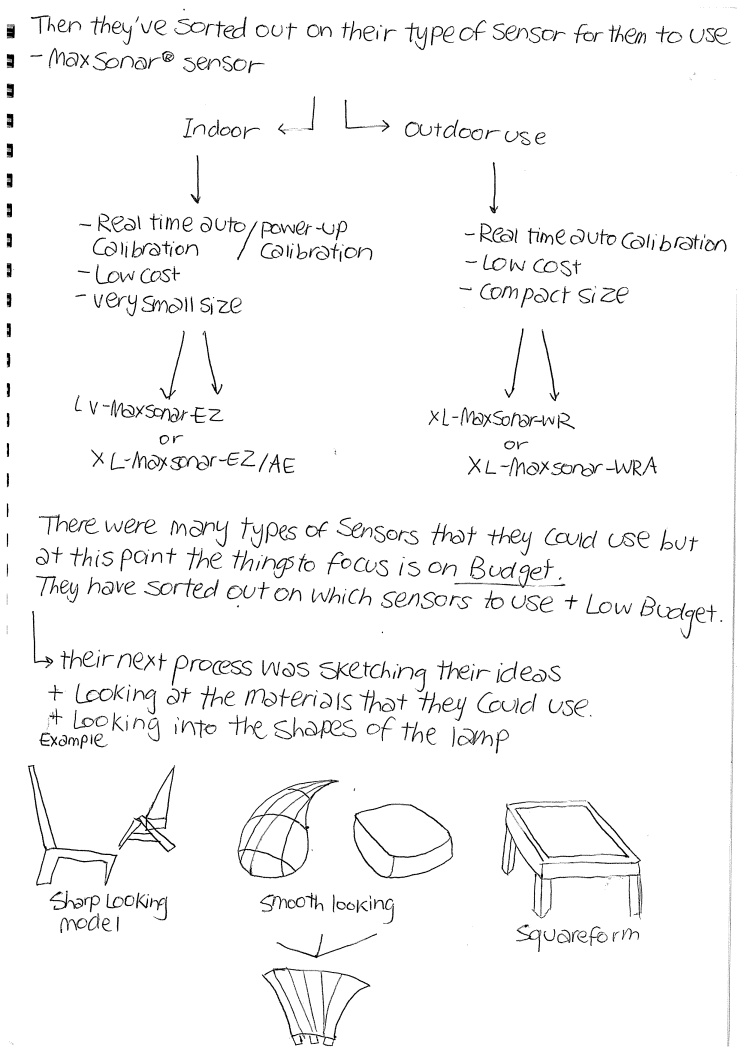 Then they've sorted out on their type of sensor for them to use
- MaxSonar® sensor
Indoor
outdoor use
- Real time auto / power-up
Calibration / Calibration
- Low cost
- very small size
- Real time auto calibration
- Low cost
- compact size
LV-MaxSonar-EZ
or
XL-MaxSonar-EZ/AE
XL-MaxSonar-WR
or
XL-MaxSonar-WRA
There were many types of sensors that they could use but
at this point the things to focus is on Budget.
They have sorted out on which sensors to use + Low Budget.
their next process was sketching their ideas
+ Looking at the materials that they could use.
+ Looking into the shapes of the lamp
Example
Sharp Looking
model
Smooth looking
Squareform